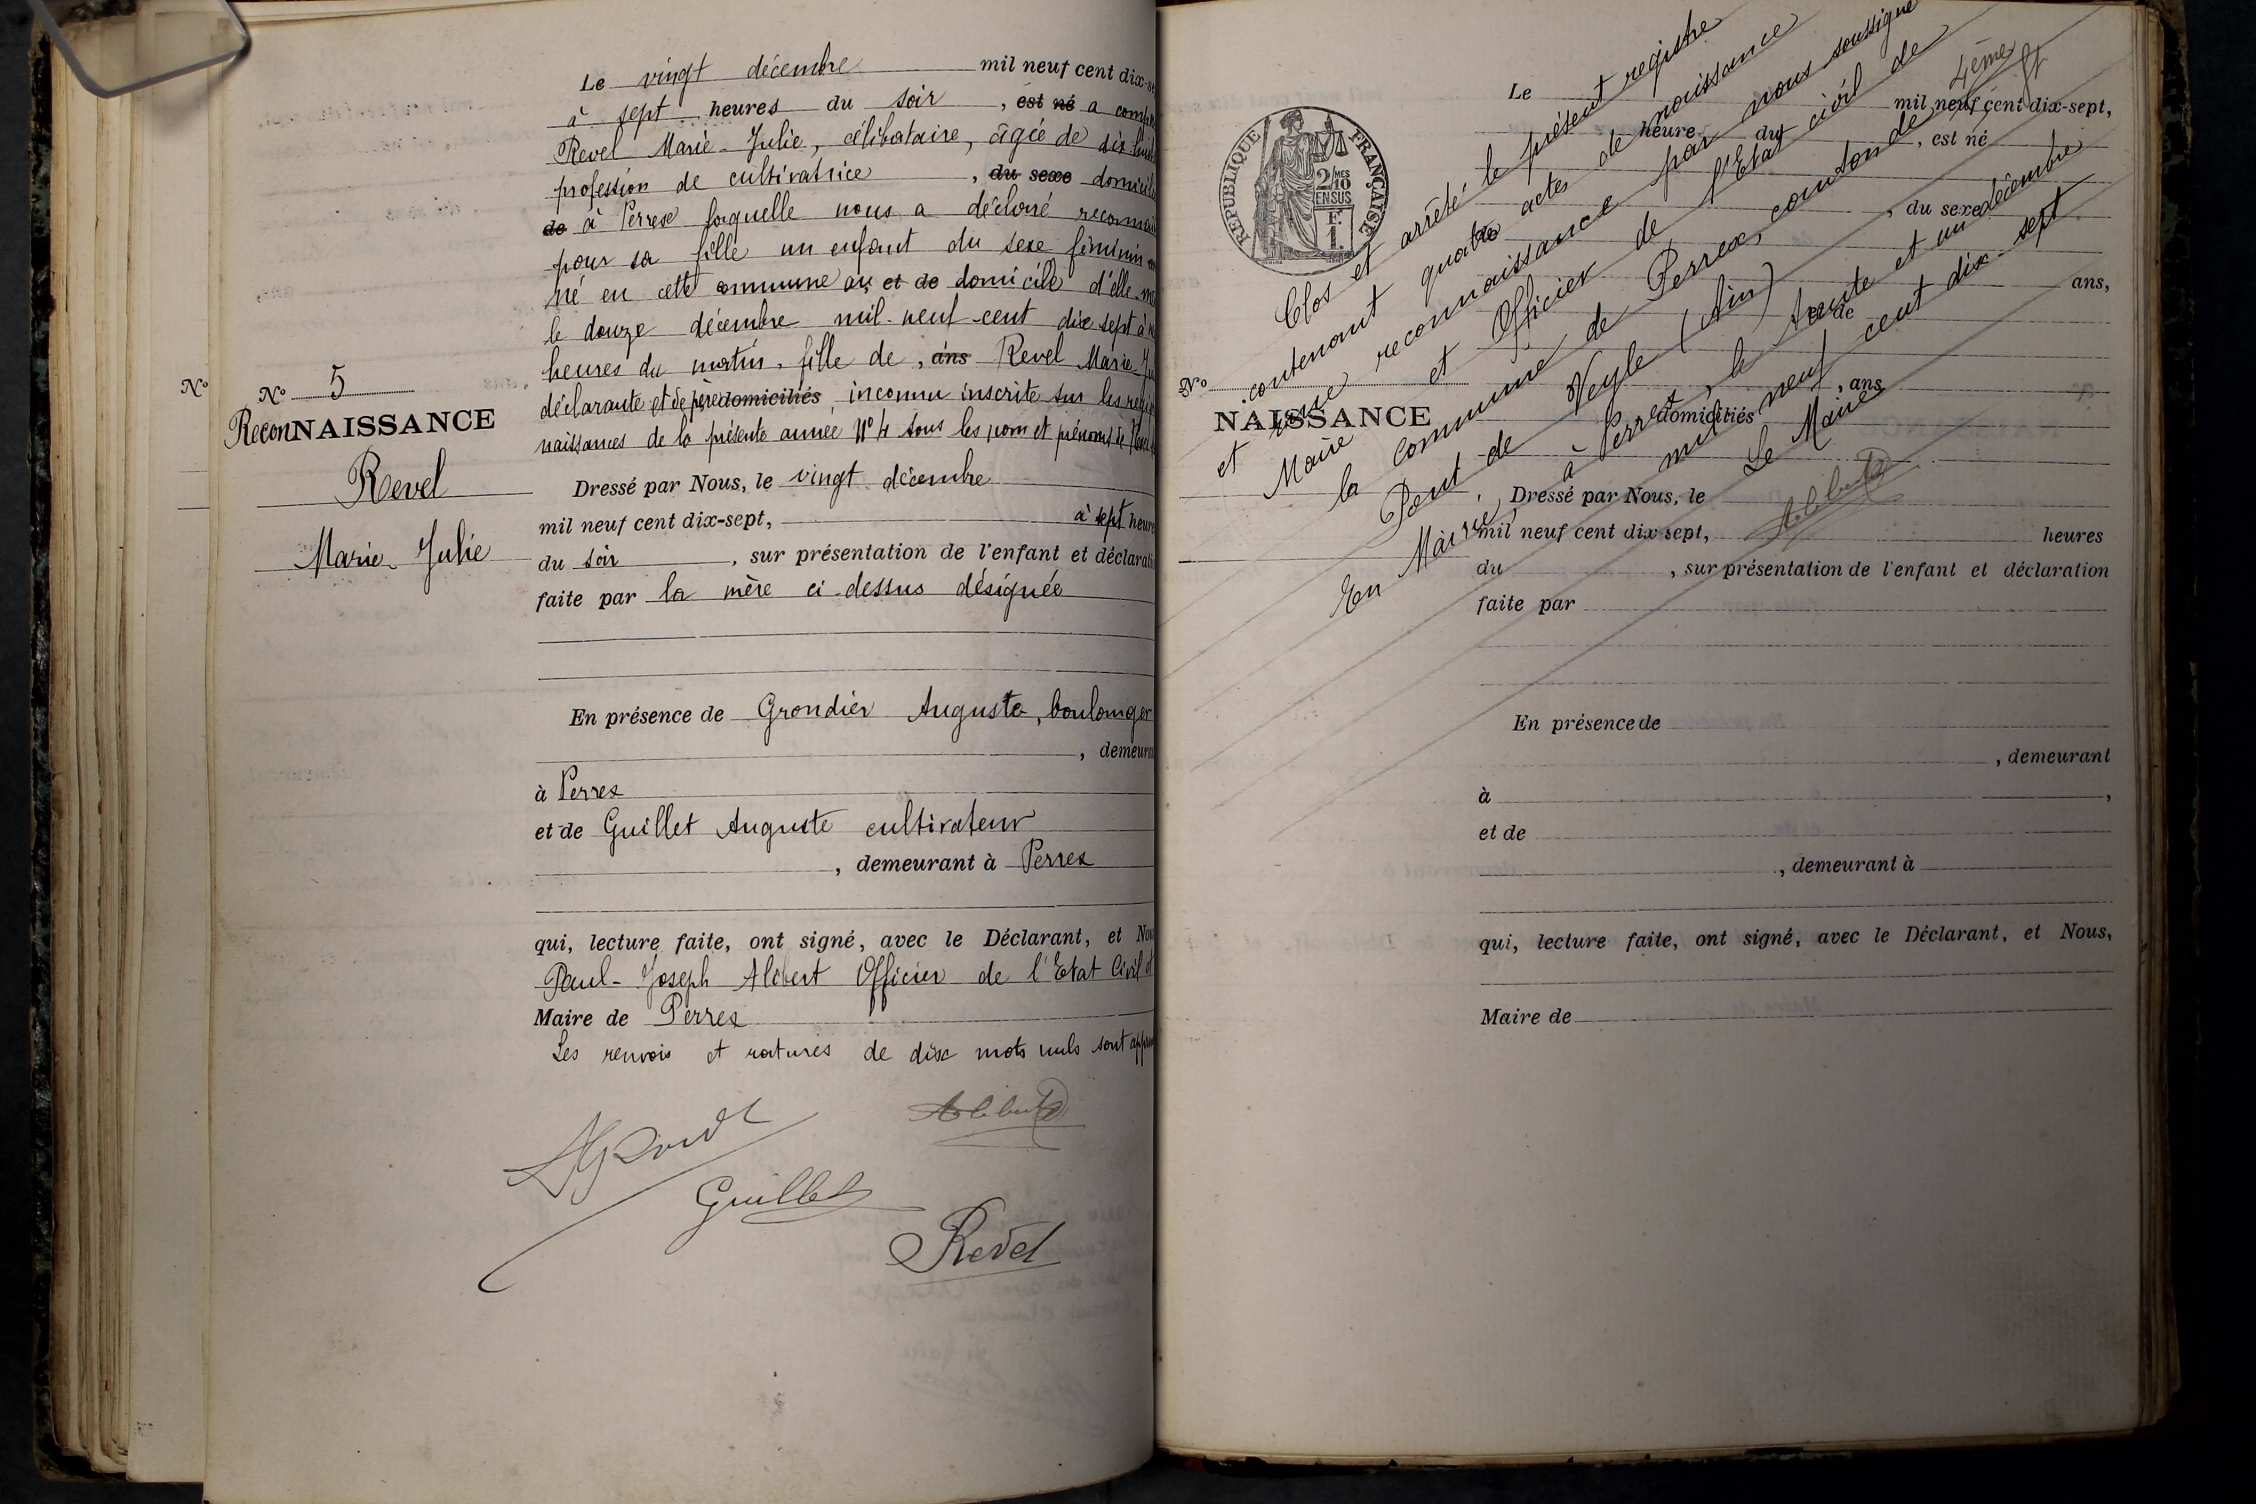 Le vingt décembre mil neuf cent dix-se
à sept heures du soir , est né a comp
Revel Marie-Julie, célibataire, âgée de dix huit
profession de cultivatrice , du sexe domicili
de à Perrex laquelle nous a déclaré reconnaî
pour sa fille un enfant du sexe féminin
né en cette commune au et de domicile d'elle-m
le douze décembre mil-neuf-cent dix sept à
heures du matin. fille de , ans Revel Marie-Ju
déclarante et de père domiciliés inconnu inscrite sur les regis
naissances de la présente année N° 4 sous les nom et prénoms de
N°
N° 5
ReconNAISSANCE
Revel
Marie-Julie
Dressé par Nous, le vingt décembre
mil neuf cent dix-sept, à sept heure
du soir , sur présentation de l'enfant et déclarati
faite par la mère ci-dessus désignée
En présence de Grondier Auguste, boulanger
, demeura
à Perrex
et de Guillet Auguste cultivateur
, demeurant à Perrex
qui, lecture faite, ont signé, avec le Déclarant, et Nou
Paul-Joseph Alibert Officier de l'Etat Civil et
Maire de Perrex
Les renvois et ratures de dix mots nuls sont appr
Guillet
Revel
REPUBLIQUE FRANÇAISE
2/10 MES
EN SUS
F.
1.
4ème ft
Clos et arrêté le présent registre
contenant quatre actes de naissance
et une reconnaissance par nous soussigné
Maire et Officier de l'Etat civil de
la commune de Perrex, canton de
Pont de Veyle (Ain)
En Mairie, à Perrex, le trente et un décembre
mil neuf cent dix-sept
Le Maire
Le mil neuf cent dix-sept,
heure du , est né
, du sexe
ans,
et de
N°
NAISSANCE
, ans
domiciliés
Dressé par Nous, le
mil neuf cent dix sept, heures
du , sur présentation de l'enfant et déclaration
faite par
En présence de
, demeurant
à ,
et de
, demeurant à
qui, lecture faite, ont signé, avec le Déclarant, et Nous,
Maire de